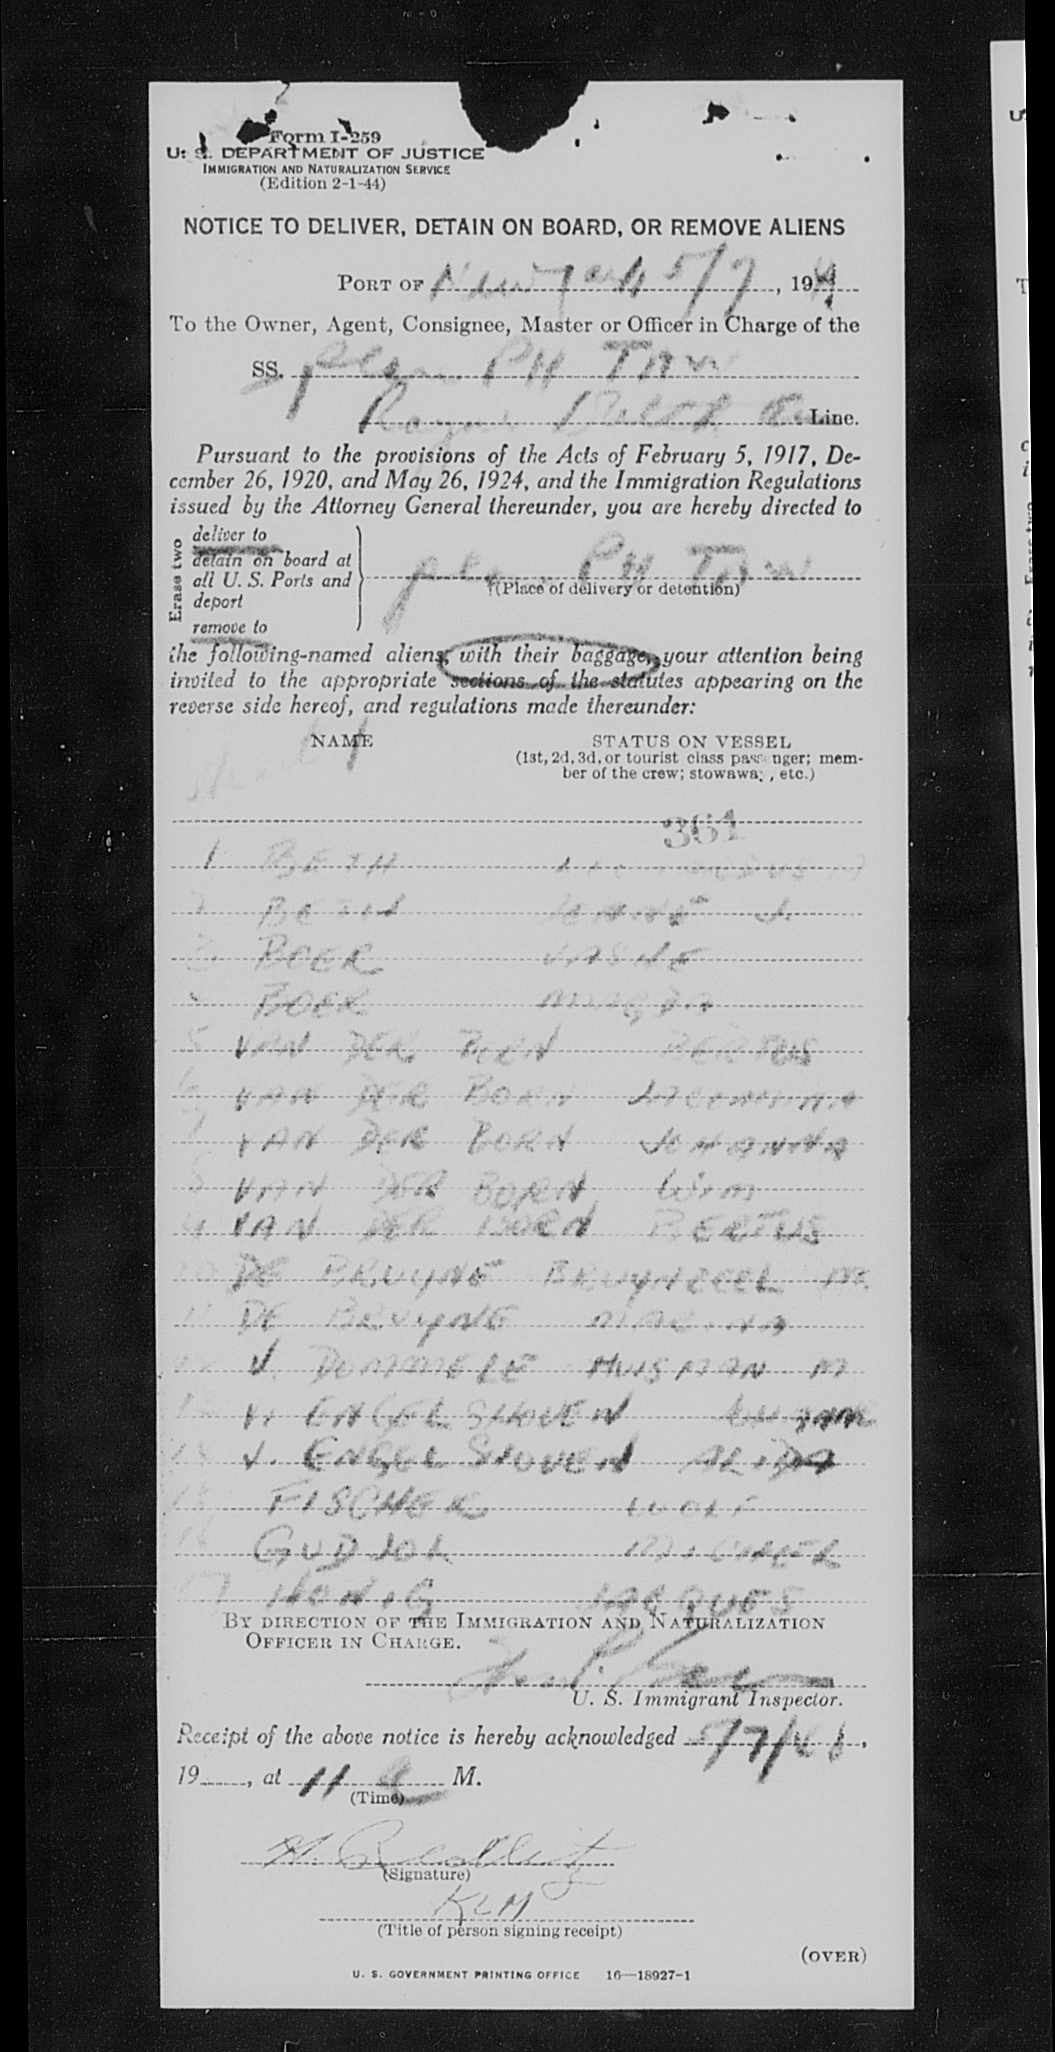 Form I-259
U. S. DEPARTMENT OF JUSTICE
IMMIGRATION AND NATURALIZATION SERVICE
(Edition 2-1-44)
NOTICE TO DELIVER, DETAIN ON BOARD, OR REMOVE ALIENS
PORT OF New York 5/7, 194
To the Owner, Agent, Consignee, Master or Officer in Charge of the
SS. PH TAW
Royal Dutch Line.
Pursuant to the provisions of the Acts of February 5, 1917, De-
cember 26, 1920, and May 26, 1924, and the Immigration Regulations
issued by the Attorney General thereunder, you are hereby directed to
Erase two
deliver to
detain on board at
all U. S. Ports and
deport
remove to
PH TAW
(Place of delivery or detention)
the following-named aliens, with their baggage, your attention being
invited to the appropriate sections of the statutes appearing on the
reverse side hereof, and regulations made thereunder:
NAME STATUS ON VESSEL
(1st, 2d, 3d, or tourist class passenger; mem-
ber of the crew; stowaway, etc.)
361
1 BETH
2 BETH J.
3 BOER
BOER MAGDA
5 VAN DER BORN BERTUS
6 VAN DER BORN JACOMINA
7 VAN DER BORN JOHANNA
8 VAN DER BORN WIM
9 VAN DER BORN BERTUS
10 DE BRUYNE BRUYNEEEL M.
11 DE BRUYNE
12 V. DOMMELE HUISMAN M
13 V. ENGELSHOVEN
V. ENGELSHOVEN ALIDA
15 FISCHER WOLF
16 GUDJOL
17 HONIG JACQUES
BY DIRECTION OF THE IMMIGRATION AND NATURALIZATION
OFFICER IN CHARGE.
U. S. Immigrant Inspector.
Receipt of the above notice is hereby acknowledged 5/7/48,
19, at 11 a M.
(Time)
H.
(Signature)
KLM
(Title of person signing receipt)
(OVER)
U. S. GOVERNMENT PRINTING OFFICE 16—18927-1